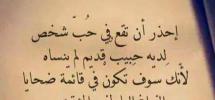 إحذر أن نقع في حُبّ شخص
لديه حبيب قديم لم ينساه
لأنك سوف تكون في قائمة ضحايا